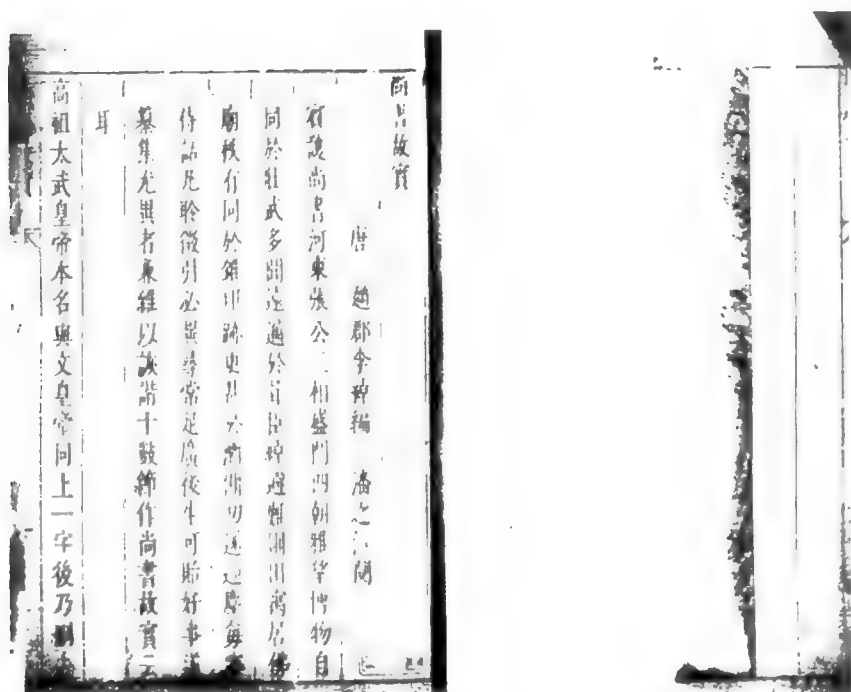 尚書故實
唐 趙郡李綽編 潘之 閱
賓護尚書河東張公三相盛門四朝雅望博物自
同於壯武多聞遠過於胥臣綽避難圃田寓居佛
廟秩有同於錐印跡更甚於酒傭叨遂迎塵每
侍話凡聆徵引必異尋常足廣後生可貽好事
纂集尤異者兼雜以詼諧十數節作尚書故實云
耳
高祖太武皇帝本名與文皇帝同上一字後乃刪